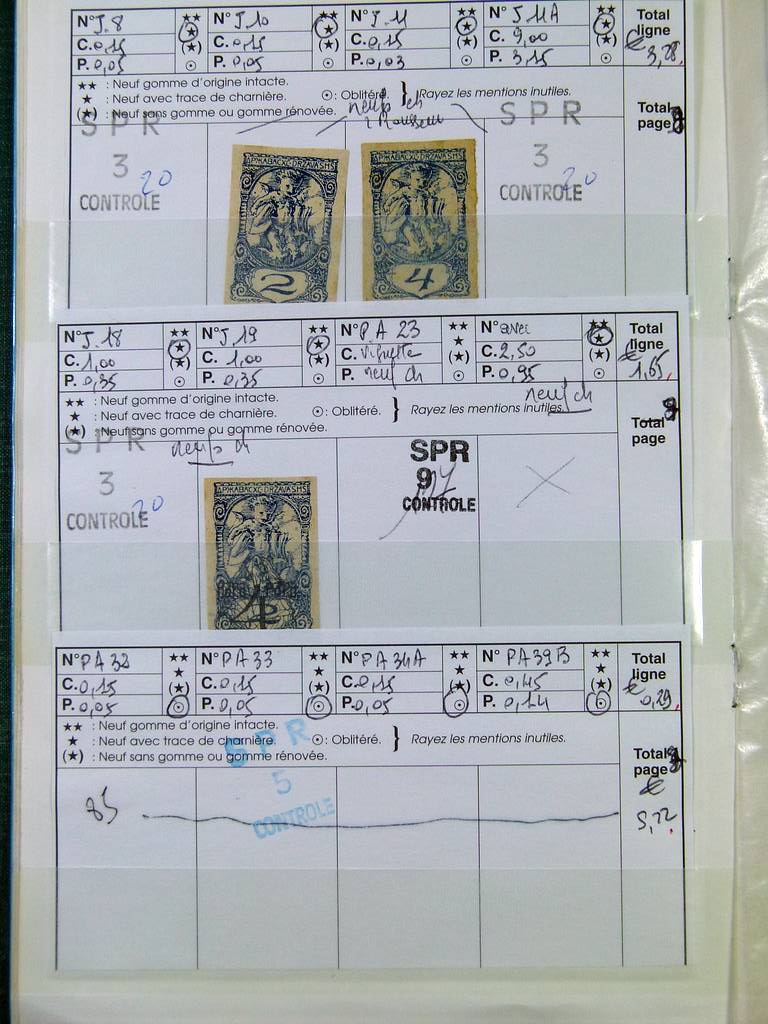 N° J.8 ★★ N° J.10 ★★ N° J.11 ★★ N° J.11A ★★ Total
C. 0,15 ★ C. 0,15 ★ C. 0,15 ★ C. 9,00 ★ ligne
(★) (★) (★) (★) € 3,28
P. 0,05 ⊙ P. 0,05 ⊙ P. 0,03 ⊙ P. 3,15 ⊙
★★ : Neuf gomme d'origine intacte.
★ : Neuf avec trace de charnière. ⊙: Oblitéré. } Rayez les mentions inutiles.
(★) : Neuf sans gomme ou gomme rénovée.
Total
page
neufs ch
SPR
3
20
CONTROLE
2
4
SPR
3
20
CONTROLE
N° J.18 ★★ N° J.19 ★★ N° PA 23 ★★ N° avec ★★ Total
C. 1,00 ★ C. 1,00 ★ C. vignette ★ C. 2,50 ★ ligne
(★) (★) (★) (★) € 1,65
P. 0,35 ⊙ P. 0,35 ⊙ P. neuf ch ⊙ P. 0,95 ⊙
★★ : Neuf gomme d'origine intacte.
★ : Neuf avec trace de charnière. ⊙: Oblitéré. } Rayez les mentions inutiles.
(★) : Neuf sans gomme ou gomme rénovée.
neuf ch
Total
page
neufs ch
SPR
3
20
CONTROLE
SPR
9
CONTROLE
N° PA 32 ★★ N° PA 33 ★★ N° PA 34A ★★ N° PA39B ★★ Total
C. 0,15 ★ C. 0,15 ★ C. 0,15 ★ C. 0,45 ★ ligne
(★) (★) (★) (★) € 0,29
P. 0,05 ⊙ P. 0,05 ⊙ P. 0,05 ⊙ P. 0,14 ⊙
★★ : Neuf gomme d'origine intacte.
★ : Neuf avec trace de charnière. ⊙: Oblitéré. } Rayez les mentions inutiles.
(★) : Neuf sans gomme ou gomme rénovée.
Total
page
€
5,22
SPR
5
CONTROLE
85